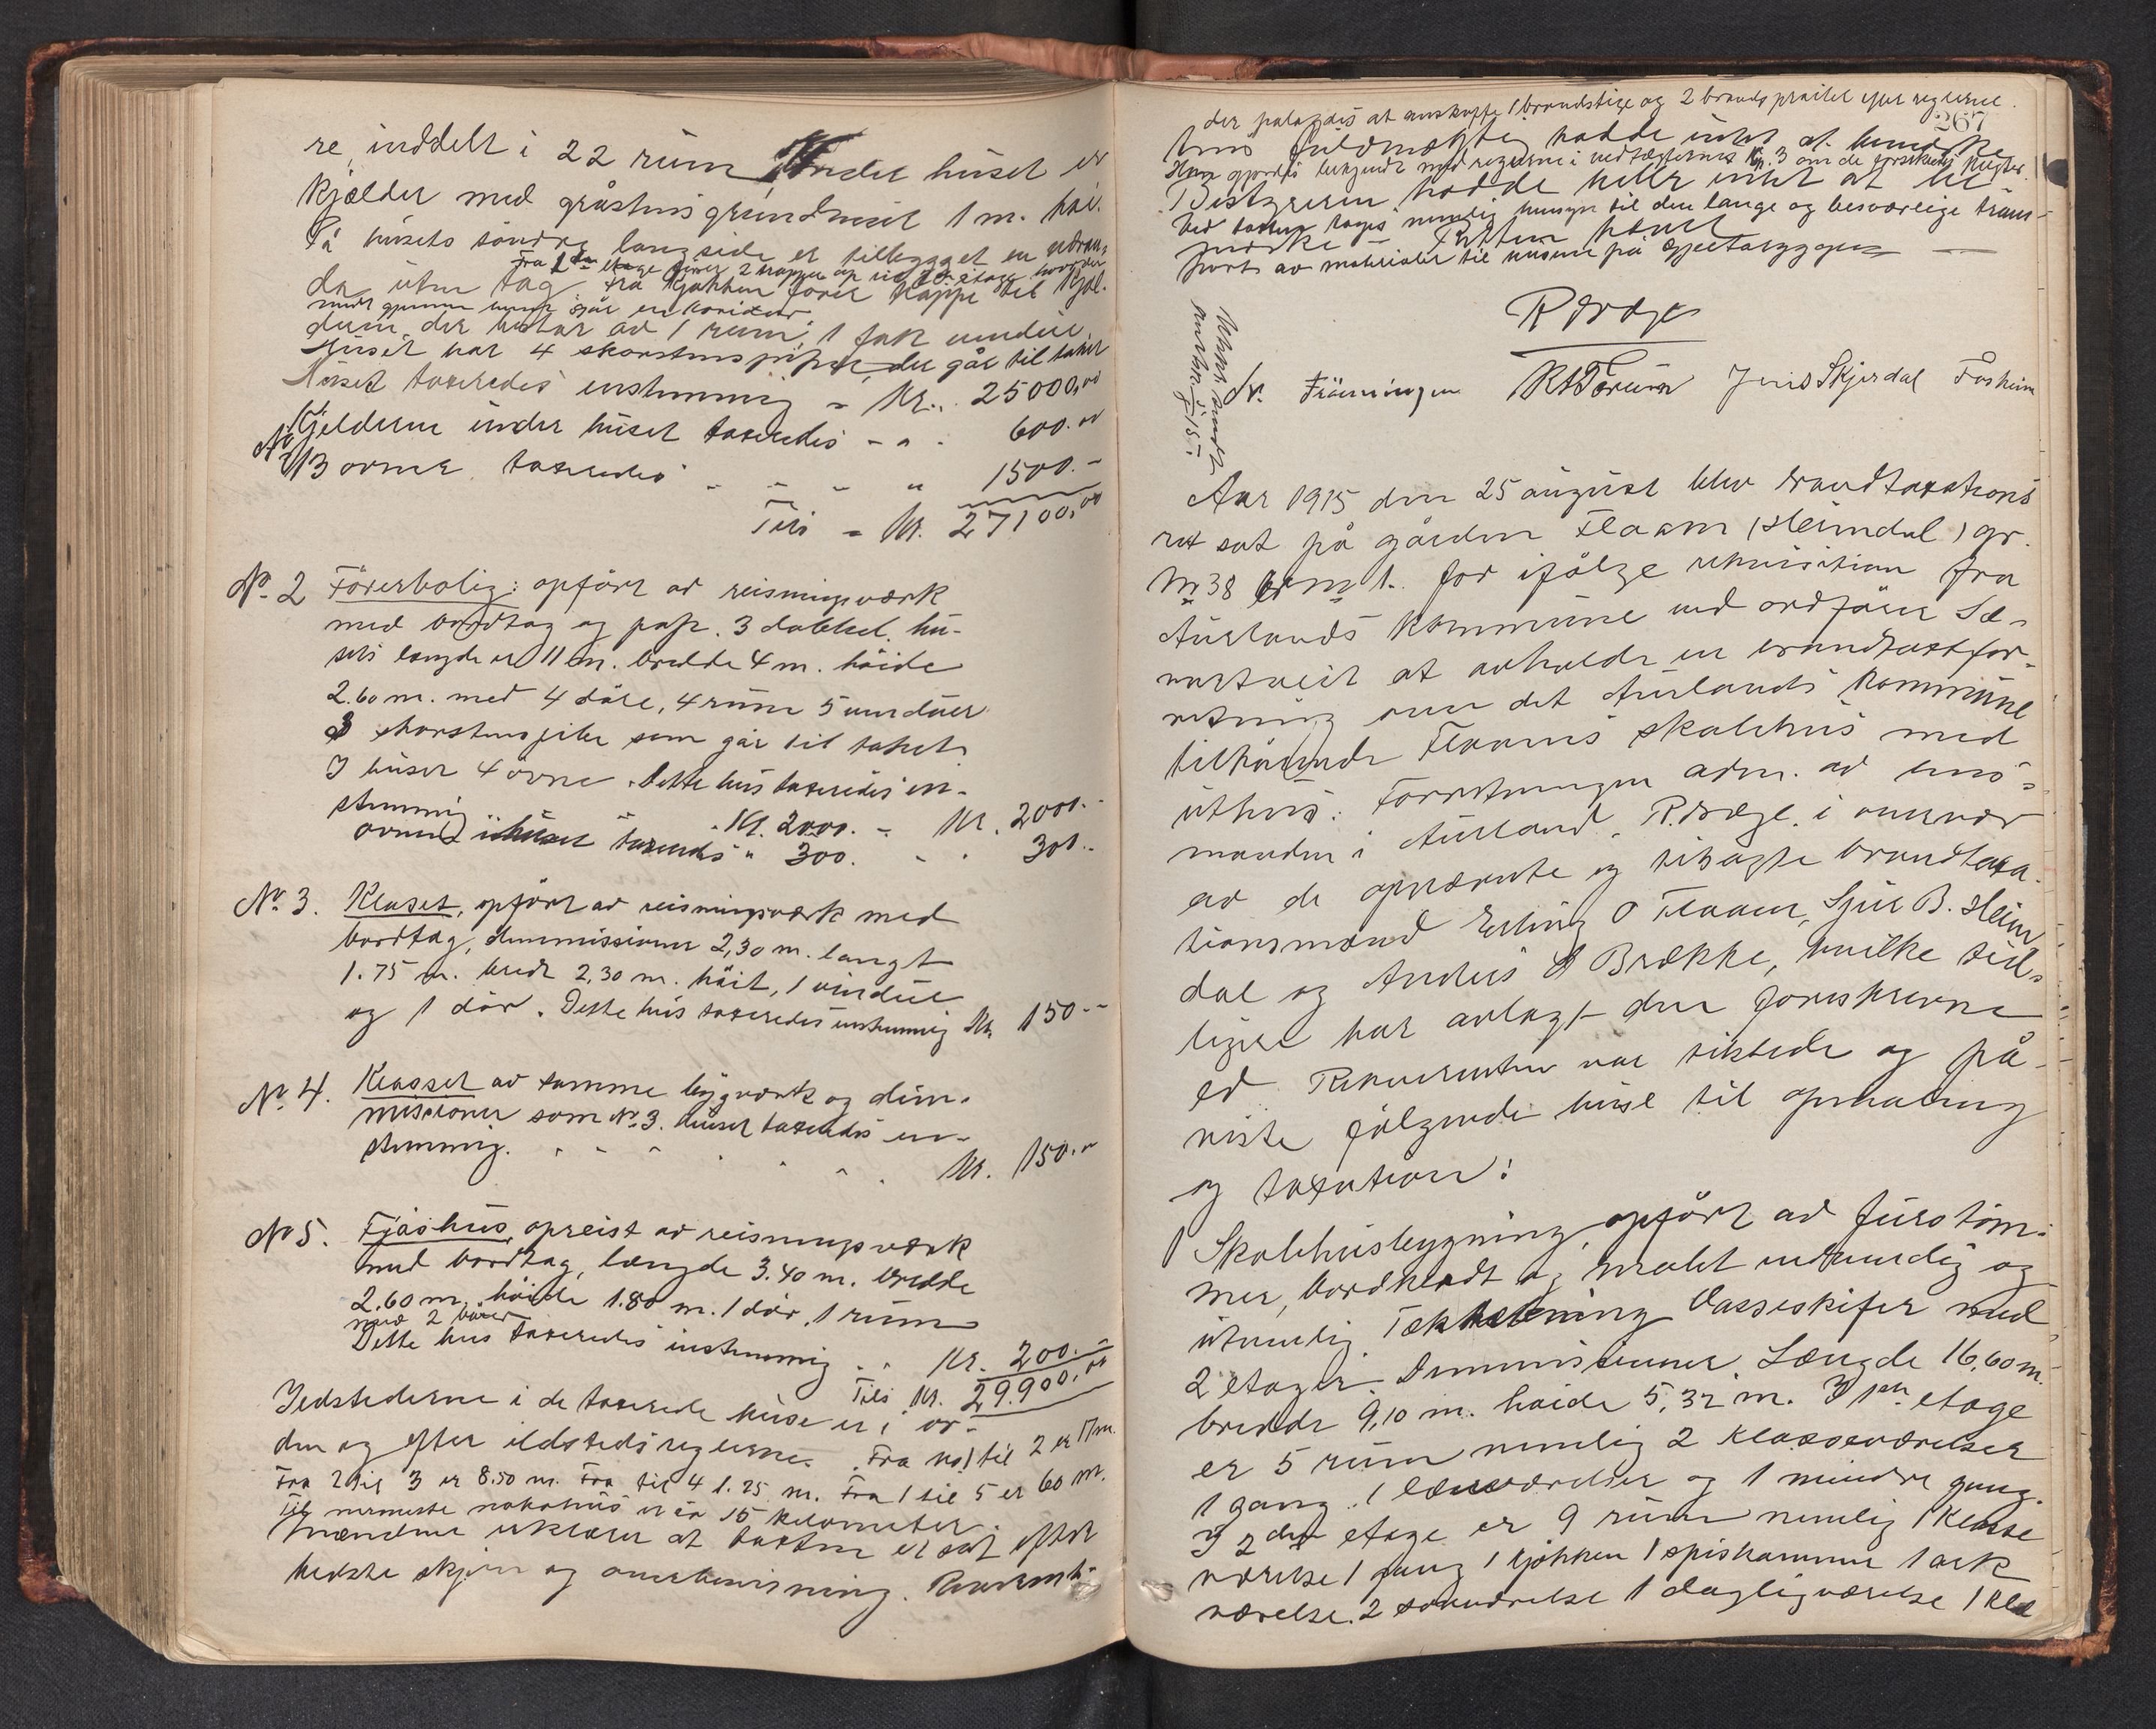 re, inddelt i 22 rum. Under huset er
kjælder med gråstensgrundmur 1 m. høi.
På husets søndre langside er tillbygget en veran-
Fra 1ste etage fører 2 trapper op til 2den etage hvorder
da uten tag. Fra kjøkken fører trappe til kjæl-
midt gjennem huset går en koridor
deren der bestar av 1 rum, 1 fak vindue.
Huset har 4 skorstenspiper, der går til taket
Huset taxeredes enstemmig = Kr. 25000,00
Kjelderen under huset taxeredes - " - 600.00
13 ovner taxeredes - - - " 1500.-
Tils = Kr. 27100,00
No. 2 Förerbolig: opfört av reisningsværk
med bordtag og pap. 3 dobbel. hu-
sets længde er 11 m. bredde 4 m. höide
2.60 m. med 4 döre, 4 rum 5 vinduer
3 skorstenspiber som går til taket.
I huset 4 ovne. Dette hus taxeredes en-
stemmig Kr. 2000. - Kr. 2000.-
ovnene i huset taxeredes " 300. - - 300.-
No. 3. Kloset, opfört av reisningsværk med
bordtag, dimmissioner 2,30 m. langt
1.75 m. bredt 2,30 m. höit, 1 vindue
og 1 dör. Dette hus taxeredes enstemmig Kr. 150.-
No. 4. Klosset av samme bygværk og dim-
missioner som No 3. huset taxeredes en-
stemmig. - - - - Kr. 150.-
No 5. Fjøshus, opreist av reisningsværk
med bordtag, længde 3.40 m. bredde
2.60 m. höide 1.80 m. 1 dör, 1 rum
med 2 båser
Dette hus taxeredes enstemmig - - Kr. 200.-
Tils Kr. 29.900,00
Ildstederne i de taxerede huse er i or-
den og efter ildstedsreglerne. Fra no 1 til 2 er 17 m.
Fra 2 til 3 er 8.50 m. Fra til 4 1.25 m. Fra 1 til 5 er 60 m.
Til nærmeste nabohus er ca 15 kilometer.
Mændene erklærer at taxten er sat efter
bedste skjøn og overbevisning. Rekvirent-
267
der pålagdes at anskaffe 1 brandstige og 2 brandsprøiter efter reglerne.
ens fuldmægtig hadde intet at bemerke
Han gjordes bekjendt med reglerne i vedtægternes Kap. 3 om de forsikredes pligter.
Bestyreren hadde heller intet at be-
Ved taxten toges nemlig hensyn til den lange og besværlige trans-
merke - Retten hævet
port av materialer til husene på Gjeiteryggen
R Bræge
Fr. Fröningen R A Torum Jens Skjerdal Fåsheim
Utskr. sendt
Aar 1915 den 25 august blev brandtaxations
ret sat på gården Flaam (Heimdal) gr.
no 38 br no 1. for ifølge rekvisition fra
Aurlands kommune ved ordfører Sæ-
vartveit at avholde en brandtaxtfor-
retning over det Aurlands kommune
tilhörende Flaams skolehus med
uthus. Forretningen adm. av lens-
manden i Aurland, R. Bræge. i overvær
av de opnævnte og tilsagte brandtaxa-
tionsmænd Erling O Flaam, Sjur B. Heim
dal og Anders O Brække, hvilke tid-
ligere har avlagt den foreskrevne
ed. Rekvirenten var tilstede og på-
viste følgende huse til opmaaling
og taxation:
1 Skolehusbygning, opfört av furutöm-
mer, bordklædt og malet indvendig og
utvendig. Taktekning Vasseskifer med
2 etager. Dimmissioner Længde 16,60 m.
bredde 9,10 m. høide 5,32 m. I 1ste etage
er 5 rum nemlig 2 klasseværelser
1 gang, 1 læreværelse og 1 mindre gang.
I 2den etage er 9 rum nemlig 1 klasse
værelse 1 gang 1 kjøkken 1 spiskammer 1 ark
værelse. 2 soveværelse 1 dagligværelse 1